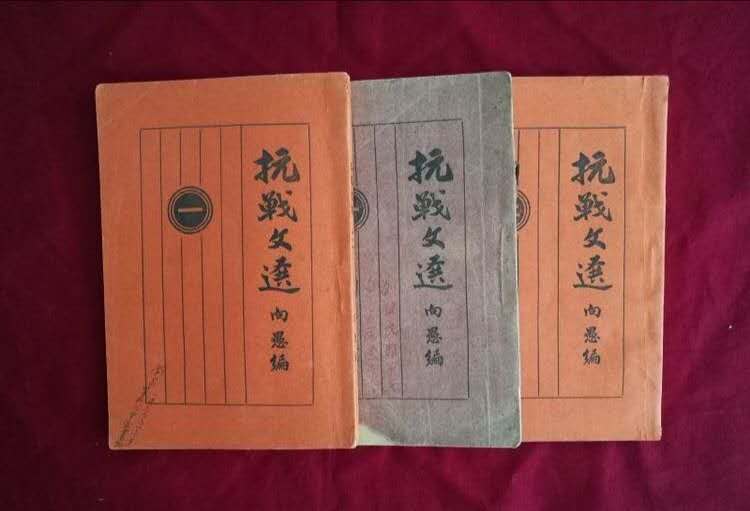 抗戰文選
向愚編
一
抗戰文選
向愚編
抗戰文選
向愚編